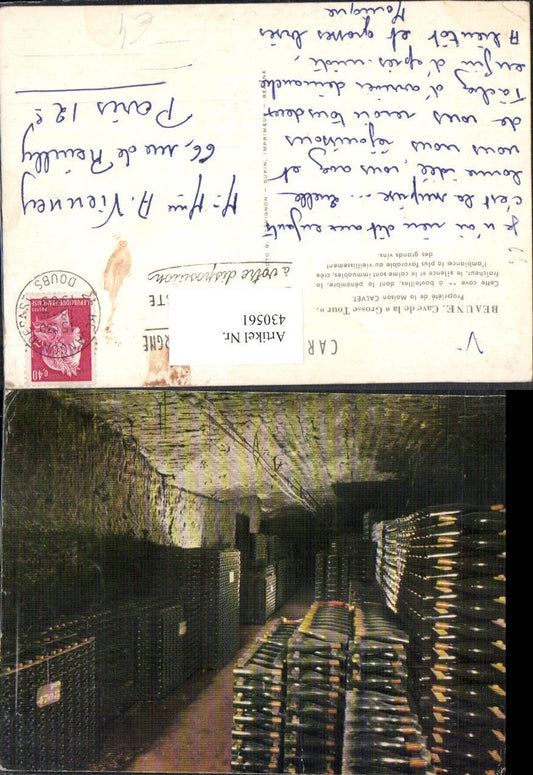 BEAUNE. Cave de la « Grosse Tour ».
Propriété de la Maison CALVET.
Cette cave à bouteilles, dont la pénombre, la
fraîcheur, le silence et le calme sont immuables, crée
l'ambiance la plus favorable au vieillissement
des grands vins.
Je n'ai rien dit aux enfants
c'est la surprise... Quelle
bonne idée, vous avez et
nous nous réjouissons
de vous revoir tous deux
Tâchez d'arriver dimanche
en fin d'après-midi,
A bientôt et grosses bises
Monique
CAR
STE
à votre disposition
RÉPUBLIQUE FRANÇAISE
0,40
DOUBS
A. Vienney
66, rue de Reuilly
Paris 12e
Artikel Nr.
430561